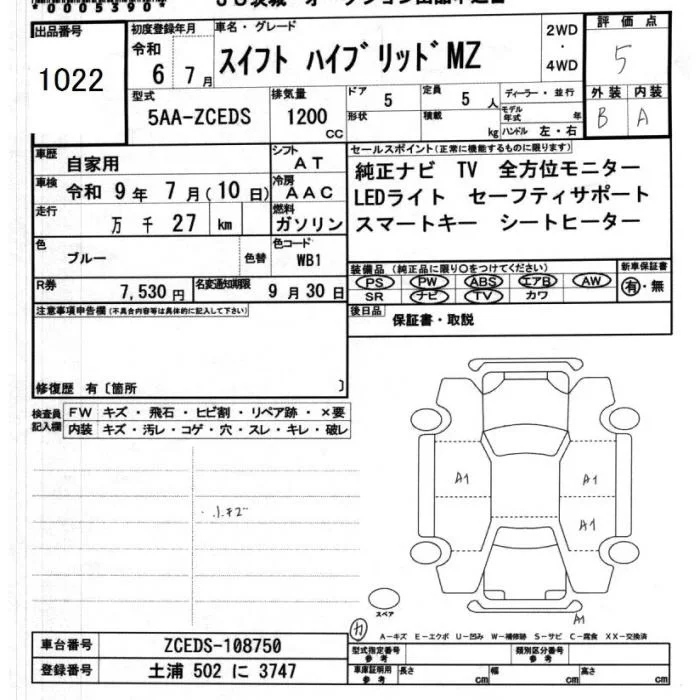 *0005390*
出品番号
1022
初度登録年月
令和
6 年 7 月
車名・グレード
スイフト ハイブリッド MZ
2WD
・
4WD
評価点
5
外装 内装
B A
型式
5AA-ZCEDS
排気量
1200
CC
ドア 5
形状
定員 5 人
積載 kg
ディーラー・並行
モデル年式 年
ハンドル 左・右
車歴 自家用
シフト AT
車検 令和 9 年 7 月(10 日)
冷房 AAC
走行 万 千 27 km
燃料 ガソリン
色 ブルー 色替
色コード WB1
R券 7,530 円
名変通知期限 9 月 30 日
セールスポイント(正常に機能するものに限ります)
純正ナビ TV 全方位モニター
LEDライト セーフティサポート
スマートキー シートヒーター
装備品(純正品に限り○をつけてください)
PS PW ABS エアB AW
SR ナビ TV カワ
新車保証書
有・無
後日品 保証書・取説
注意事項申告欄(不具合内容等は具体的に記入して下さい)
修復歴 有〔箇所 〕
検査員記入欄
FW キズ・飛石・ヒビ割・リペア跡・×要
内装 キズ・汚レ・コゲ・穴・スレ・キレ・破レ
・小キズ
A1
A1
A1
A1
スペア
カ
A-キズ E-エクボ U-凹み W-補修跡 S-サビ C-腐食 XX-交換済
車台番号 ZCEDS-108750
登録番号 土浦 502 に 3747
型式指定番号 参考
類別区分番号 参考
車庫証明用 参考
長さ cm 幅 cm 高さ cm